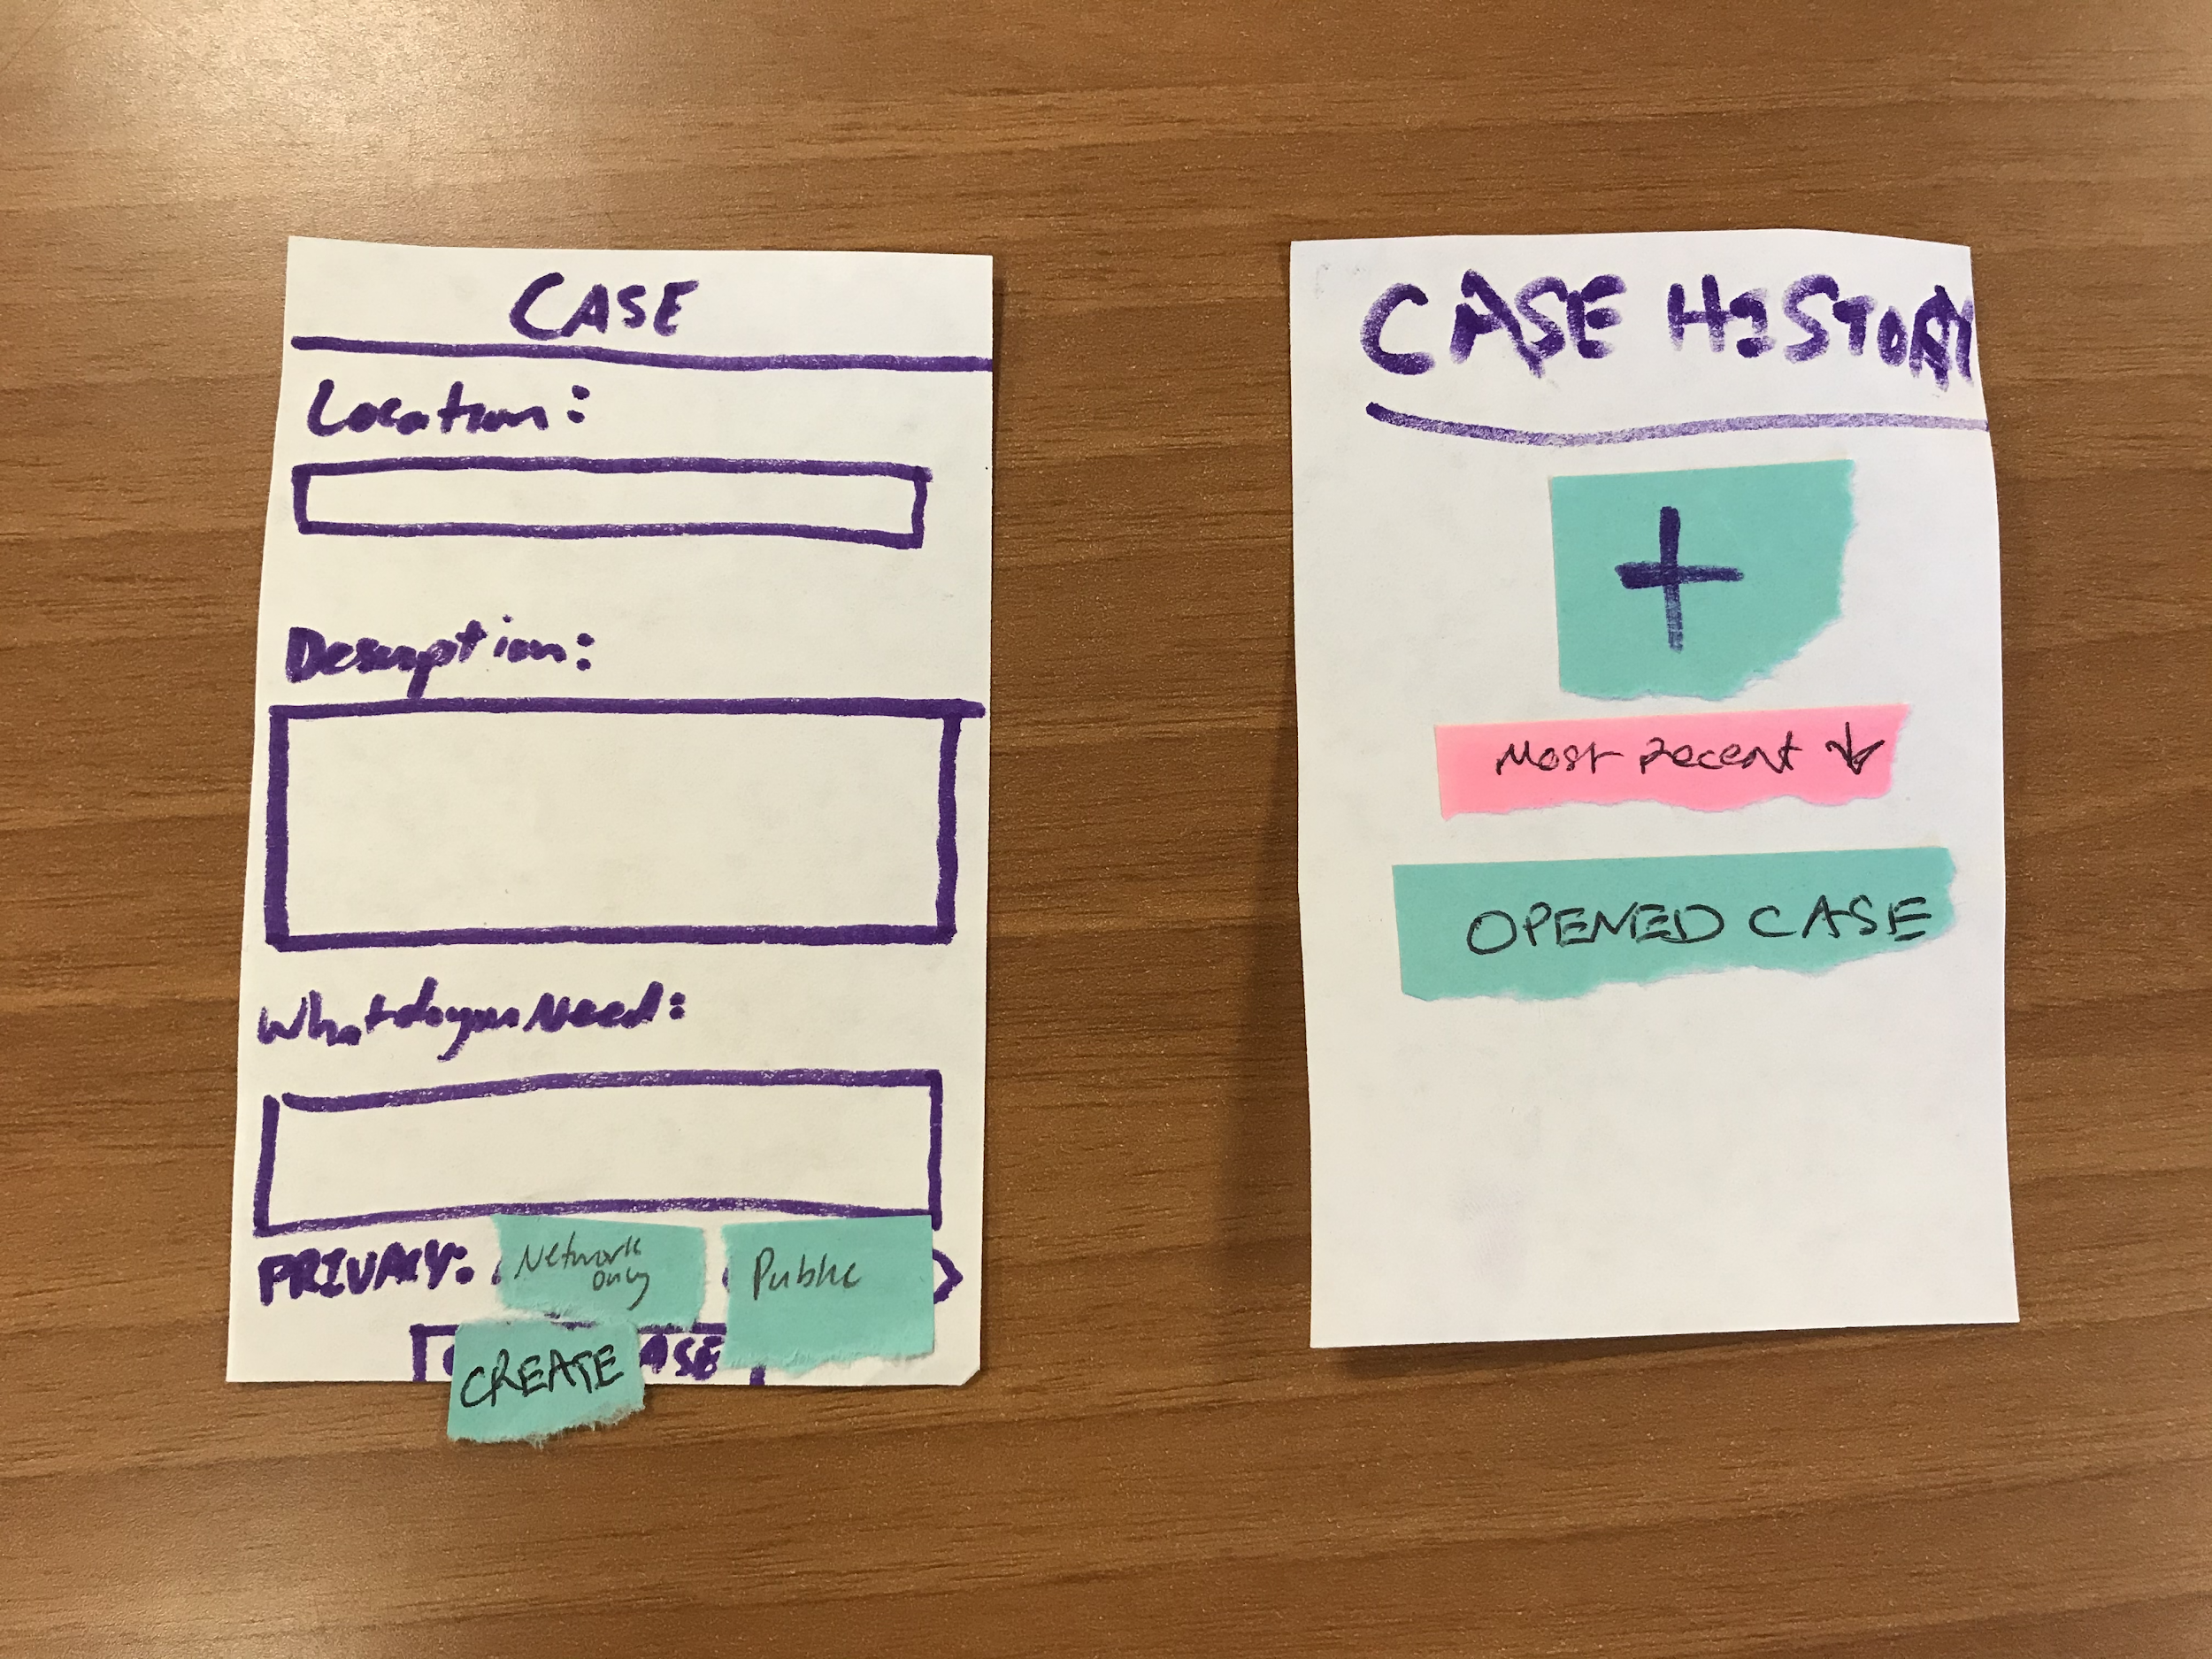 CASE
Location:
Description:
What do you Need:
PRIVACY:
Network
Only
Public
CREATE
CASE HISTORY
+
Most recent ↓
OPENED CASE